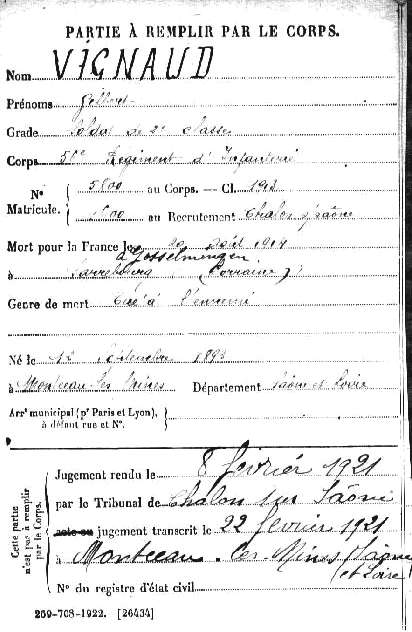 PARTIE À REMPLIR PAR LE CORPS.
Nom VIGNAUD
Prénoms
Grade Soldat de 2e classe
Corps 56e Régiment d'Infanterie
No Matricule. 5800 au Corps. — Cl. 1913
au Recrutement Chalon s/Saône
Mort pour la France le 20 août 1914
à Gosselmingen
à Sarrebourg (Lorraine)
Genre de mort Tué à l'ennemi
Né le 12 Septembre 1893
à Montceau les Mines Département Saône et Loire
Arrt municipal (pr Paris et Lyon),
à défaut rue et No.
Cette partie n'est pas à remplir par le Corps.
Jugement rendu le 8 février 1921
par le Tribunal de Chalon sur Saône
acte ou jugement transcrit le 22 février 1921
à Montceau-les-Mines (Saône
et Loire)
No du registre d'état civil
209-708-1922. [26434]